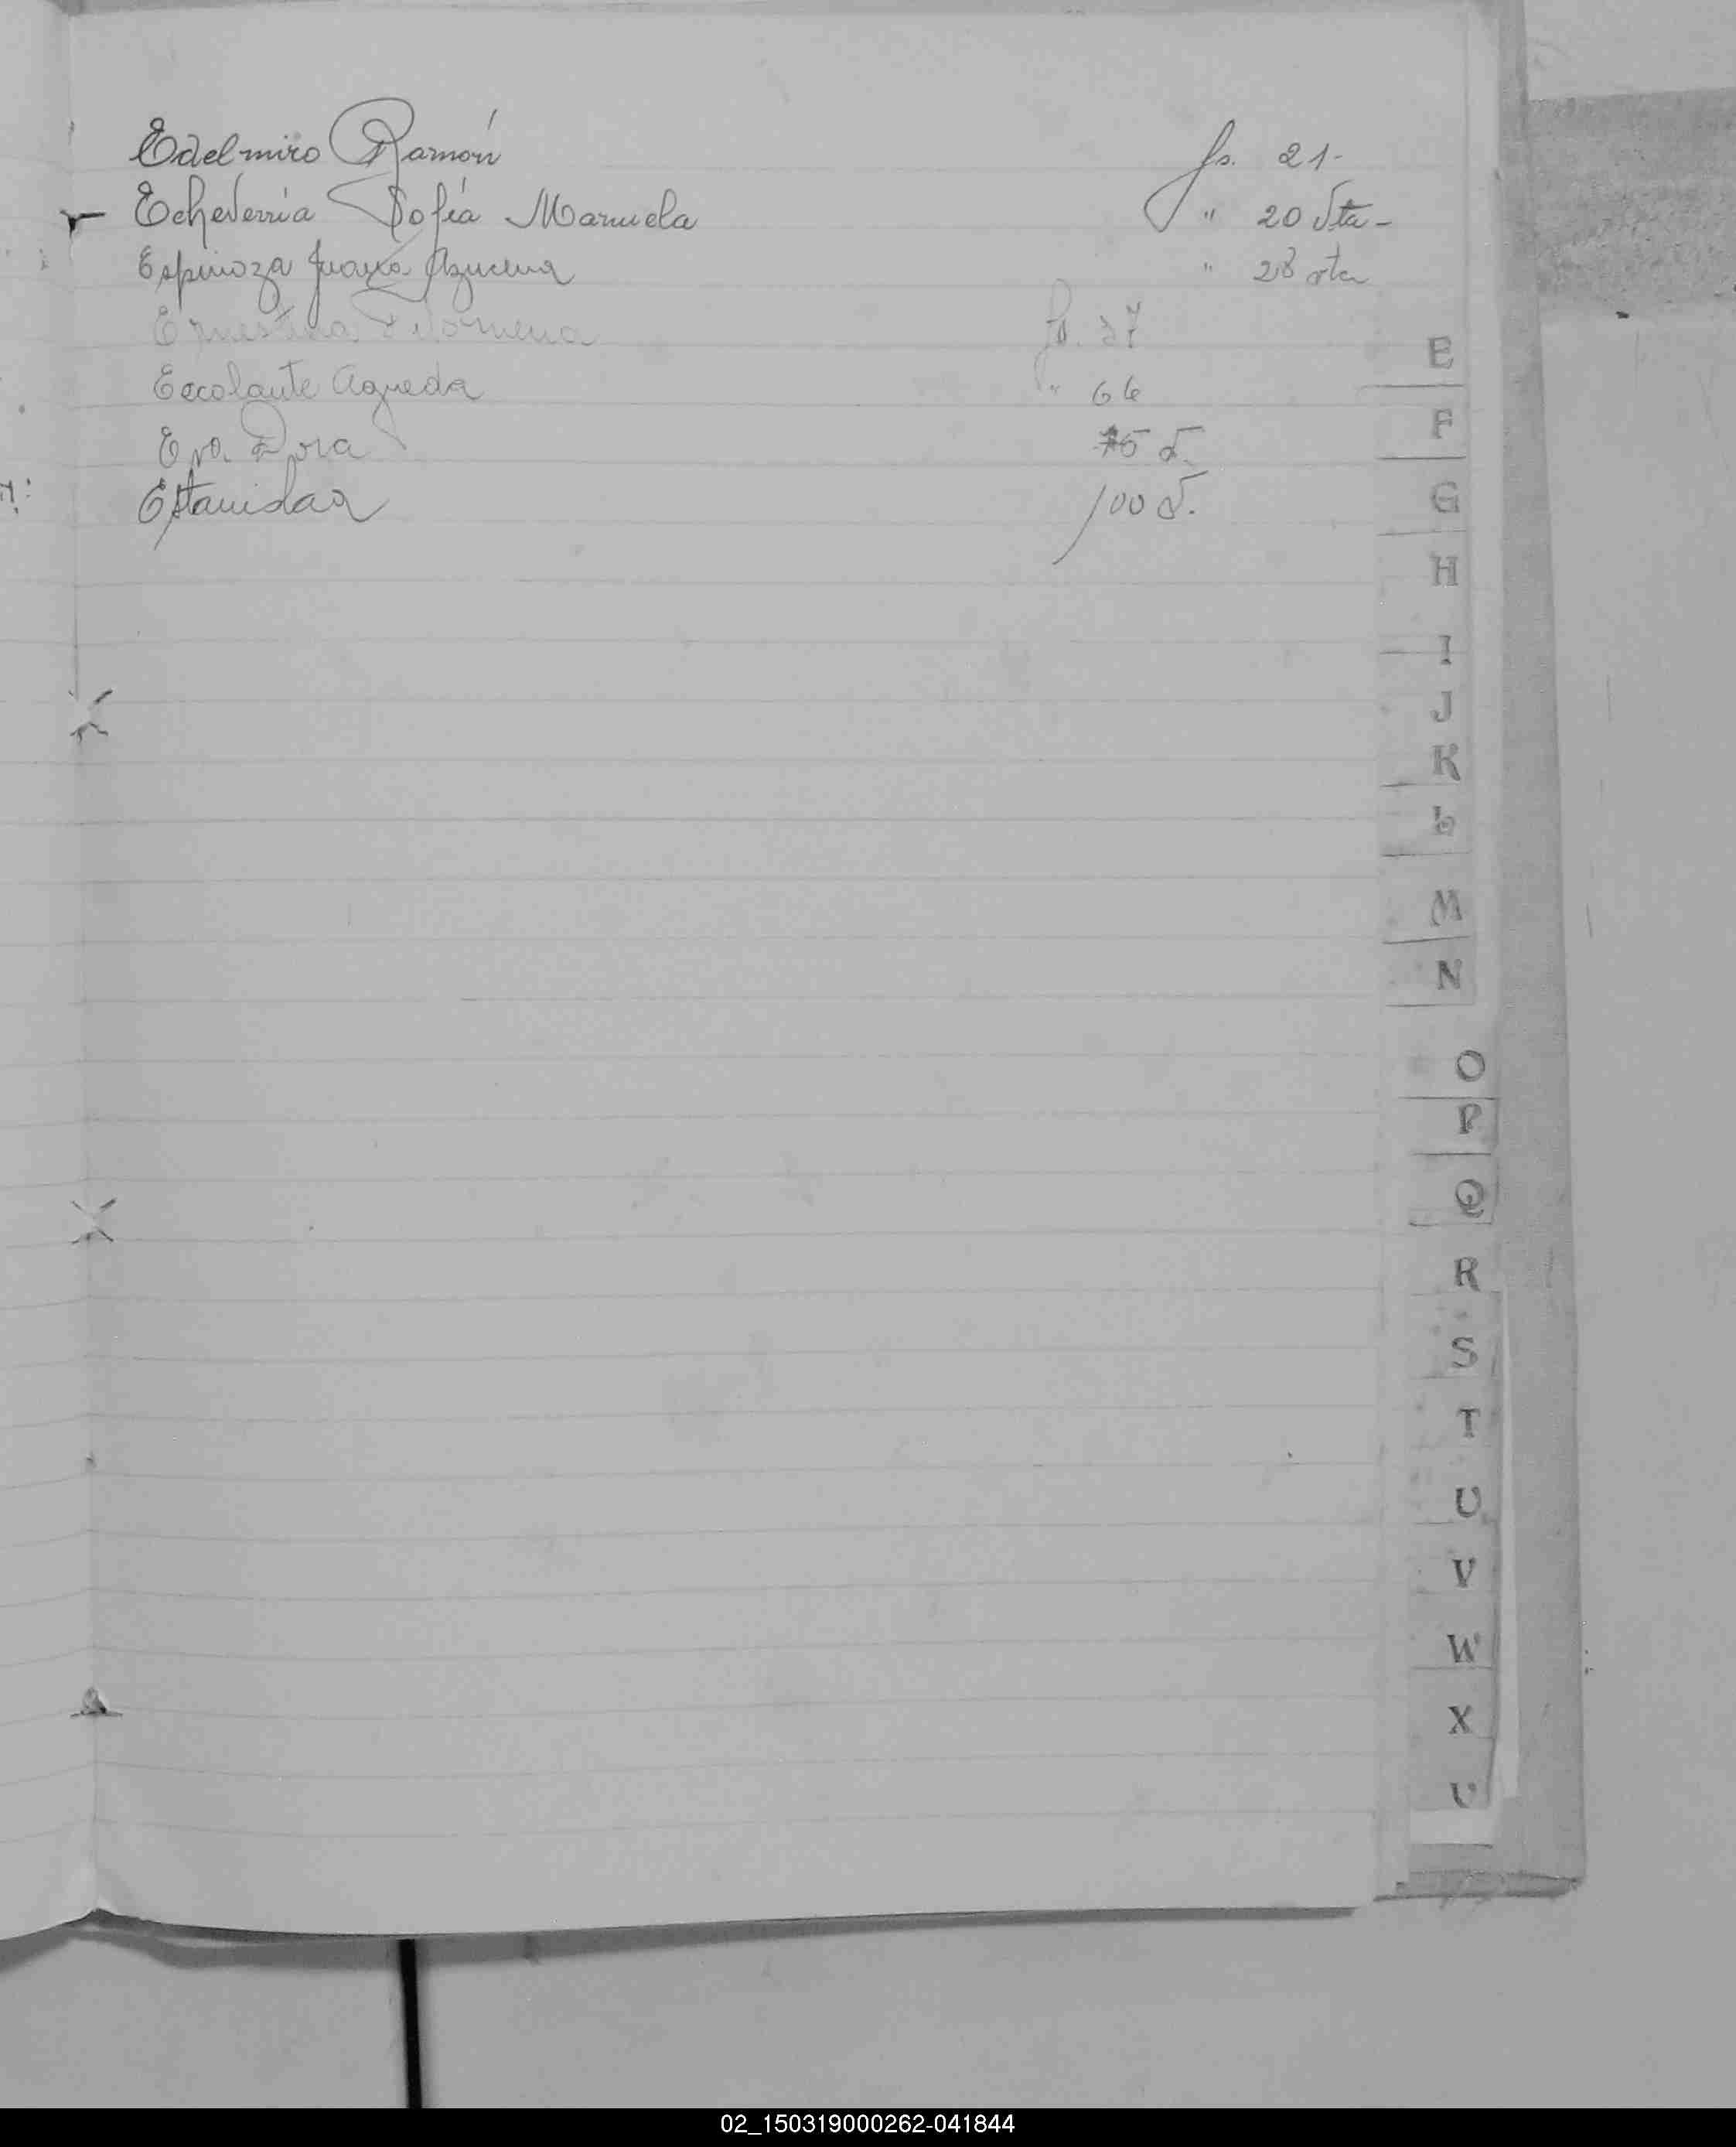 Edelmiro Ramón fs. 21-
Echeverría Sofía Manuela " 20 Vta-
Espinoza Juana Azucena " 28 vta
Ernestina Filomena fs. 37
Escolante Agueda " 66
Eva Dora 75 v.
Estanislaa 100 v.
E
F
G
H
I
J
K
L
M
N
O
P
Q
R
S
T
U
V
W
X
02_150319000262-041844